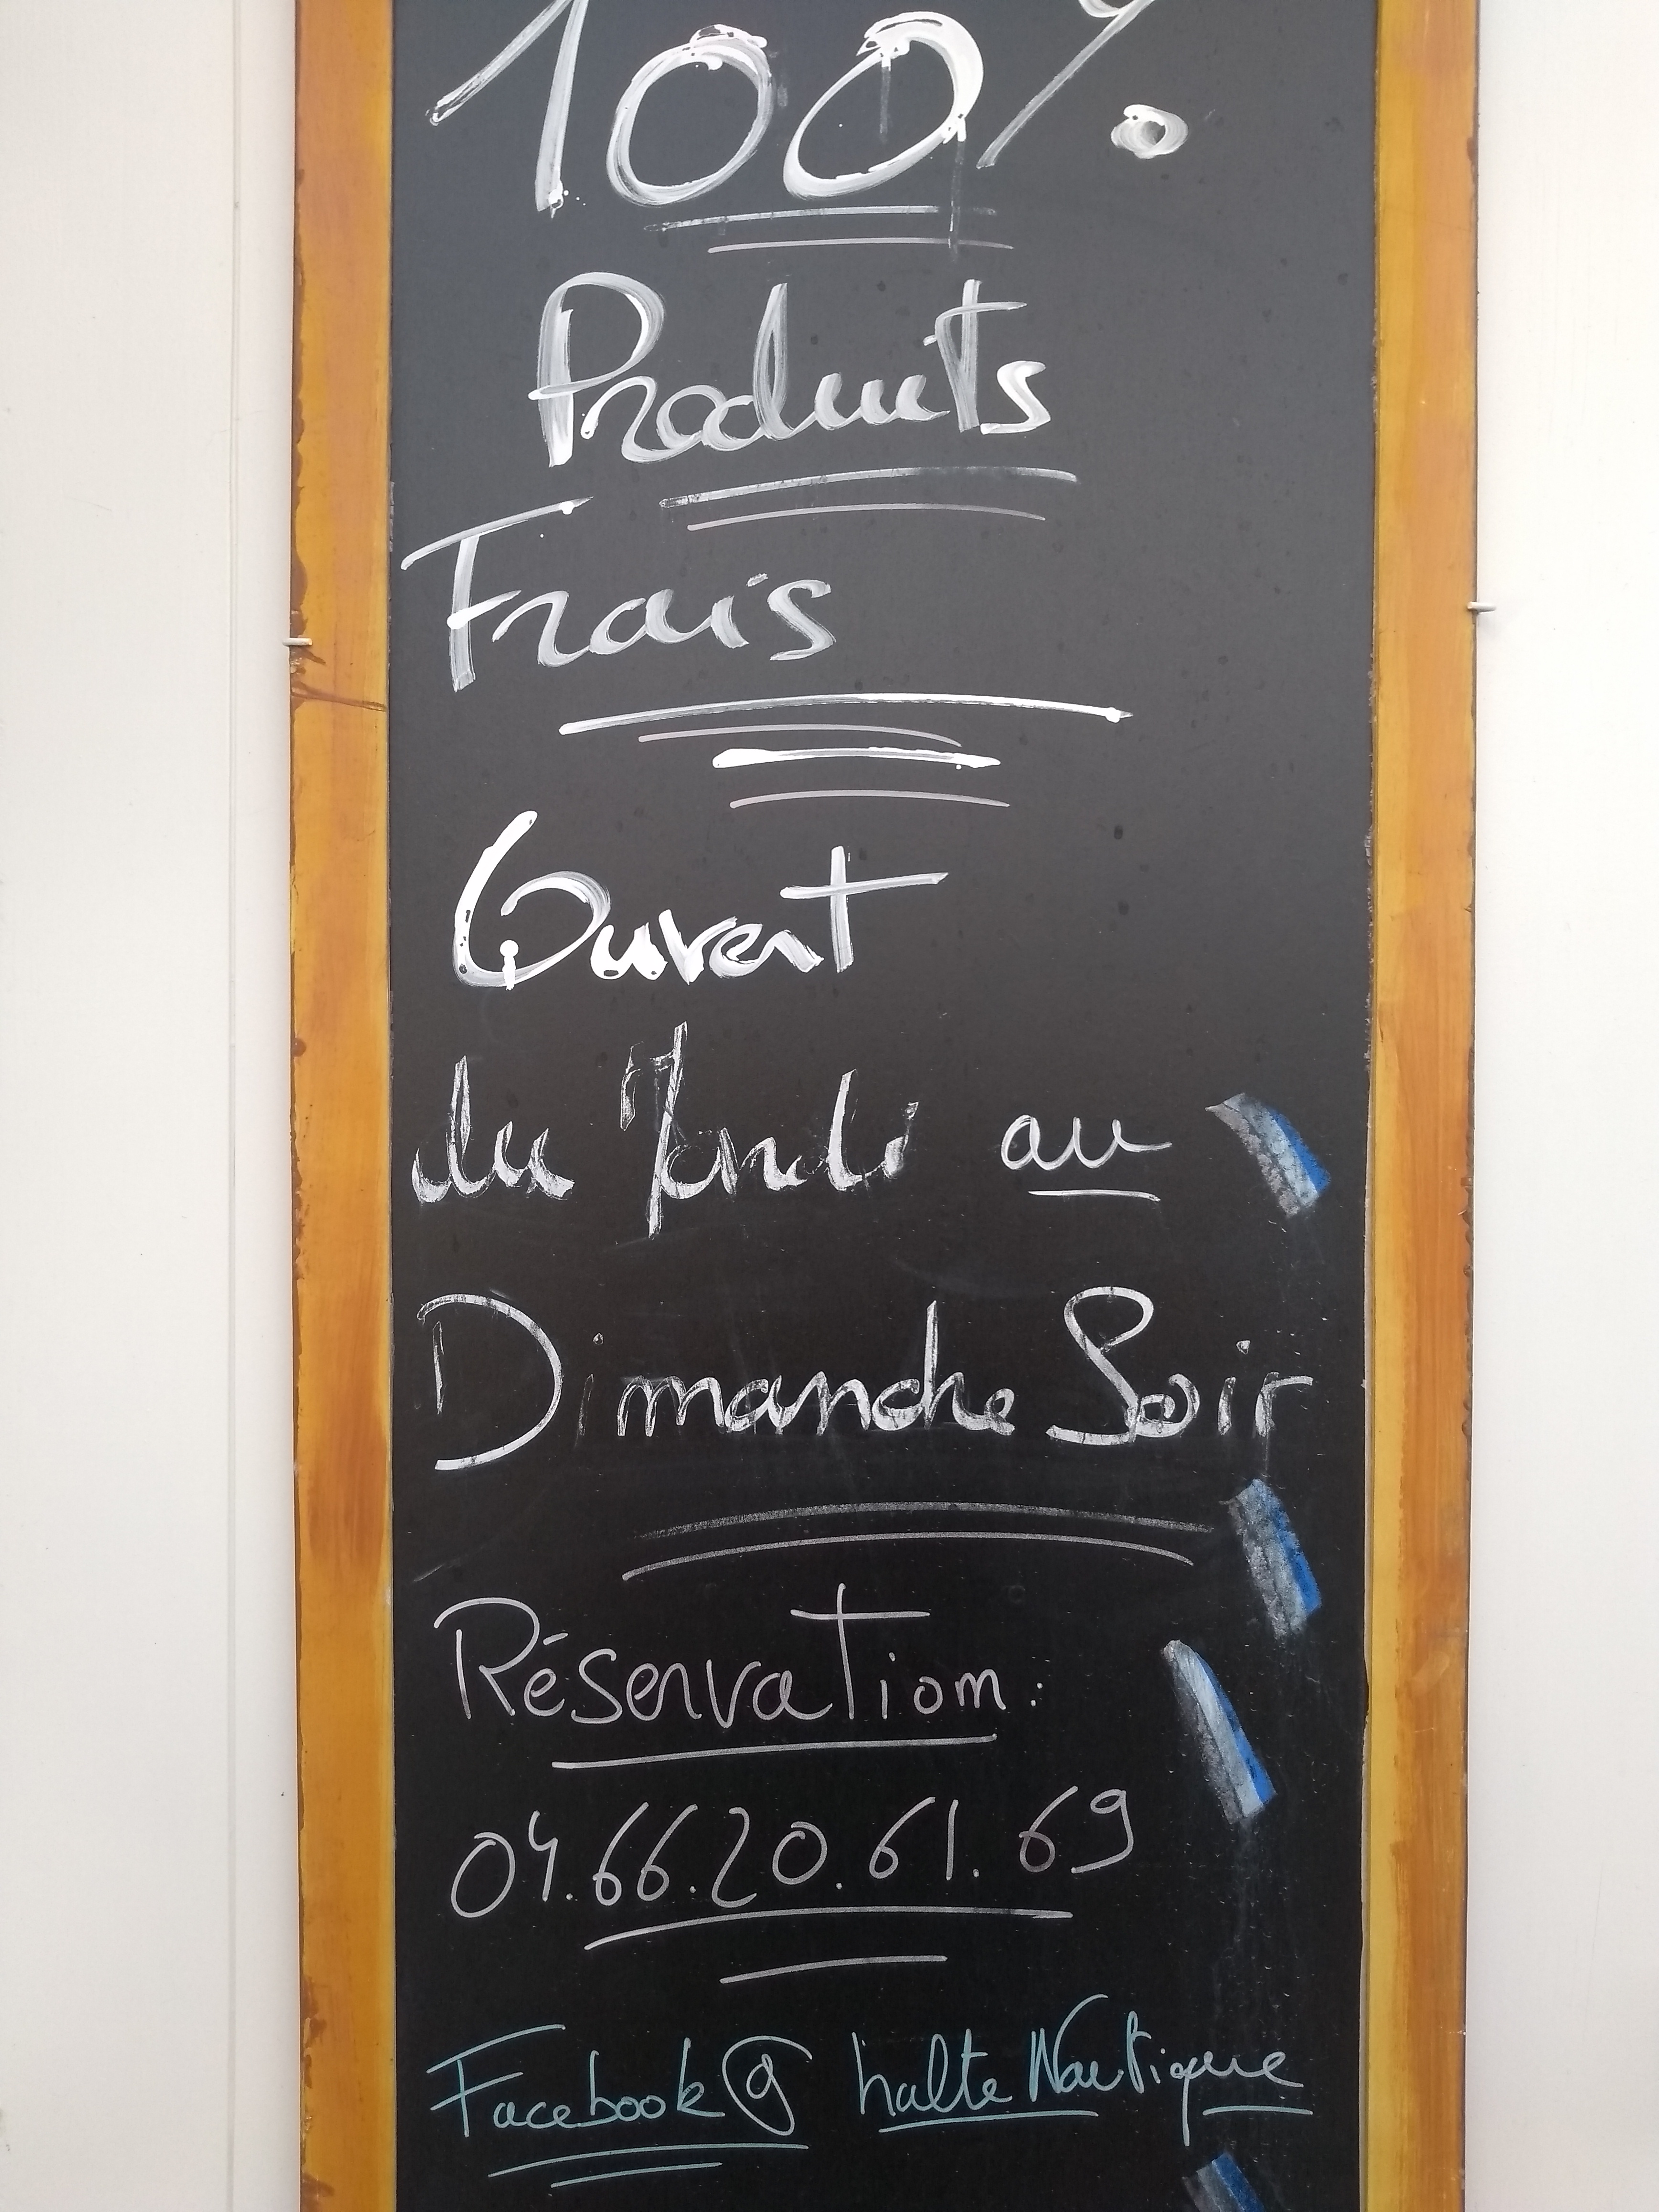 100%
Produits
Frais
Ouvert
du au
Dimanche Soir
Réservation :
04.66.20.61.69
Facebook @ halte Nautique